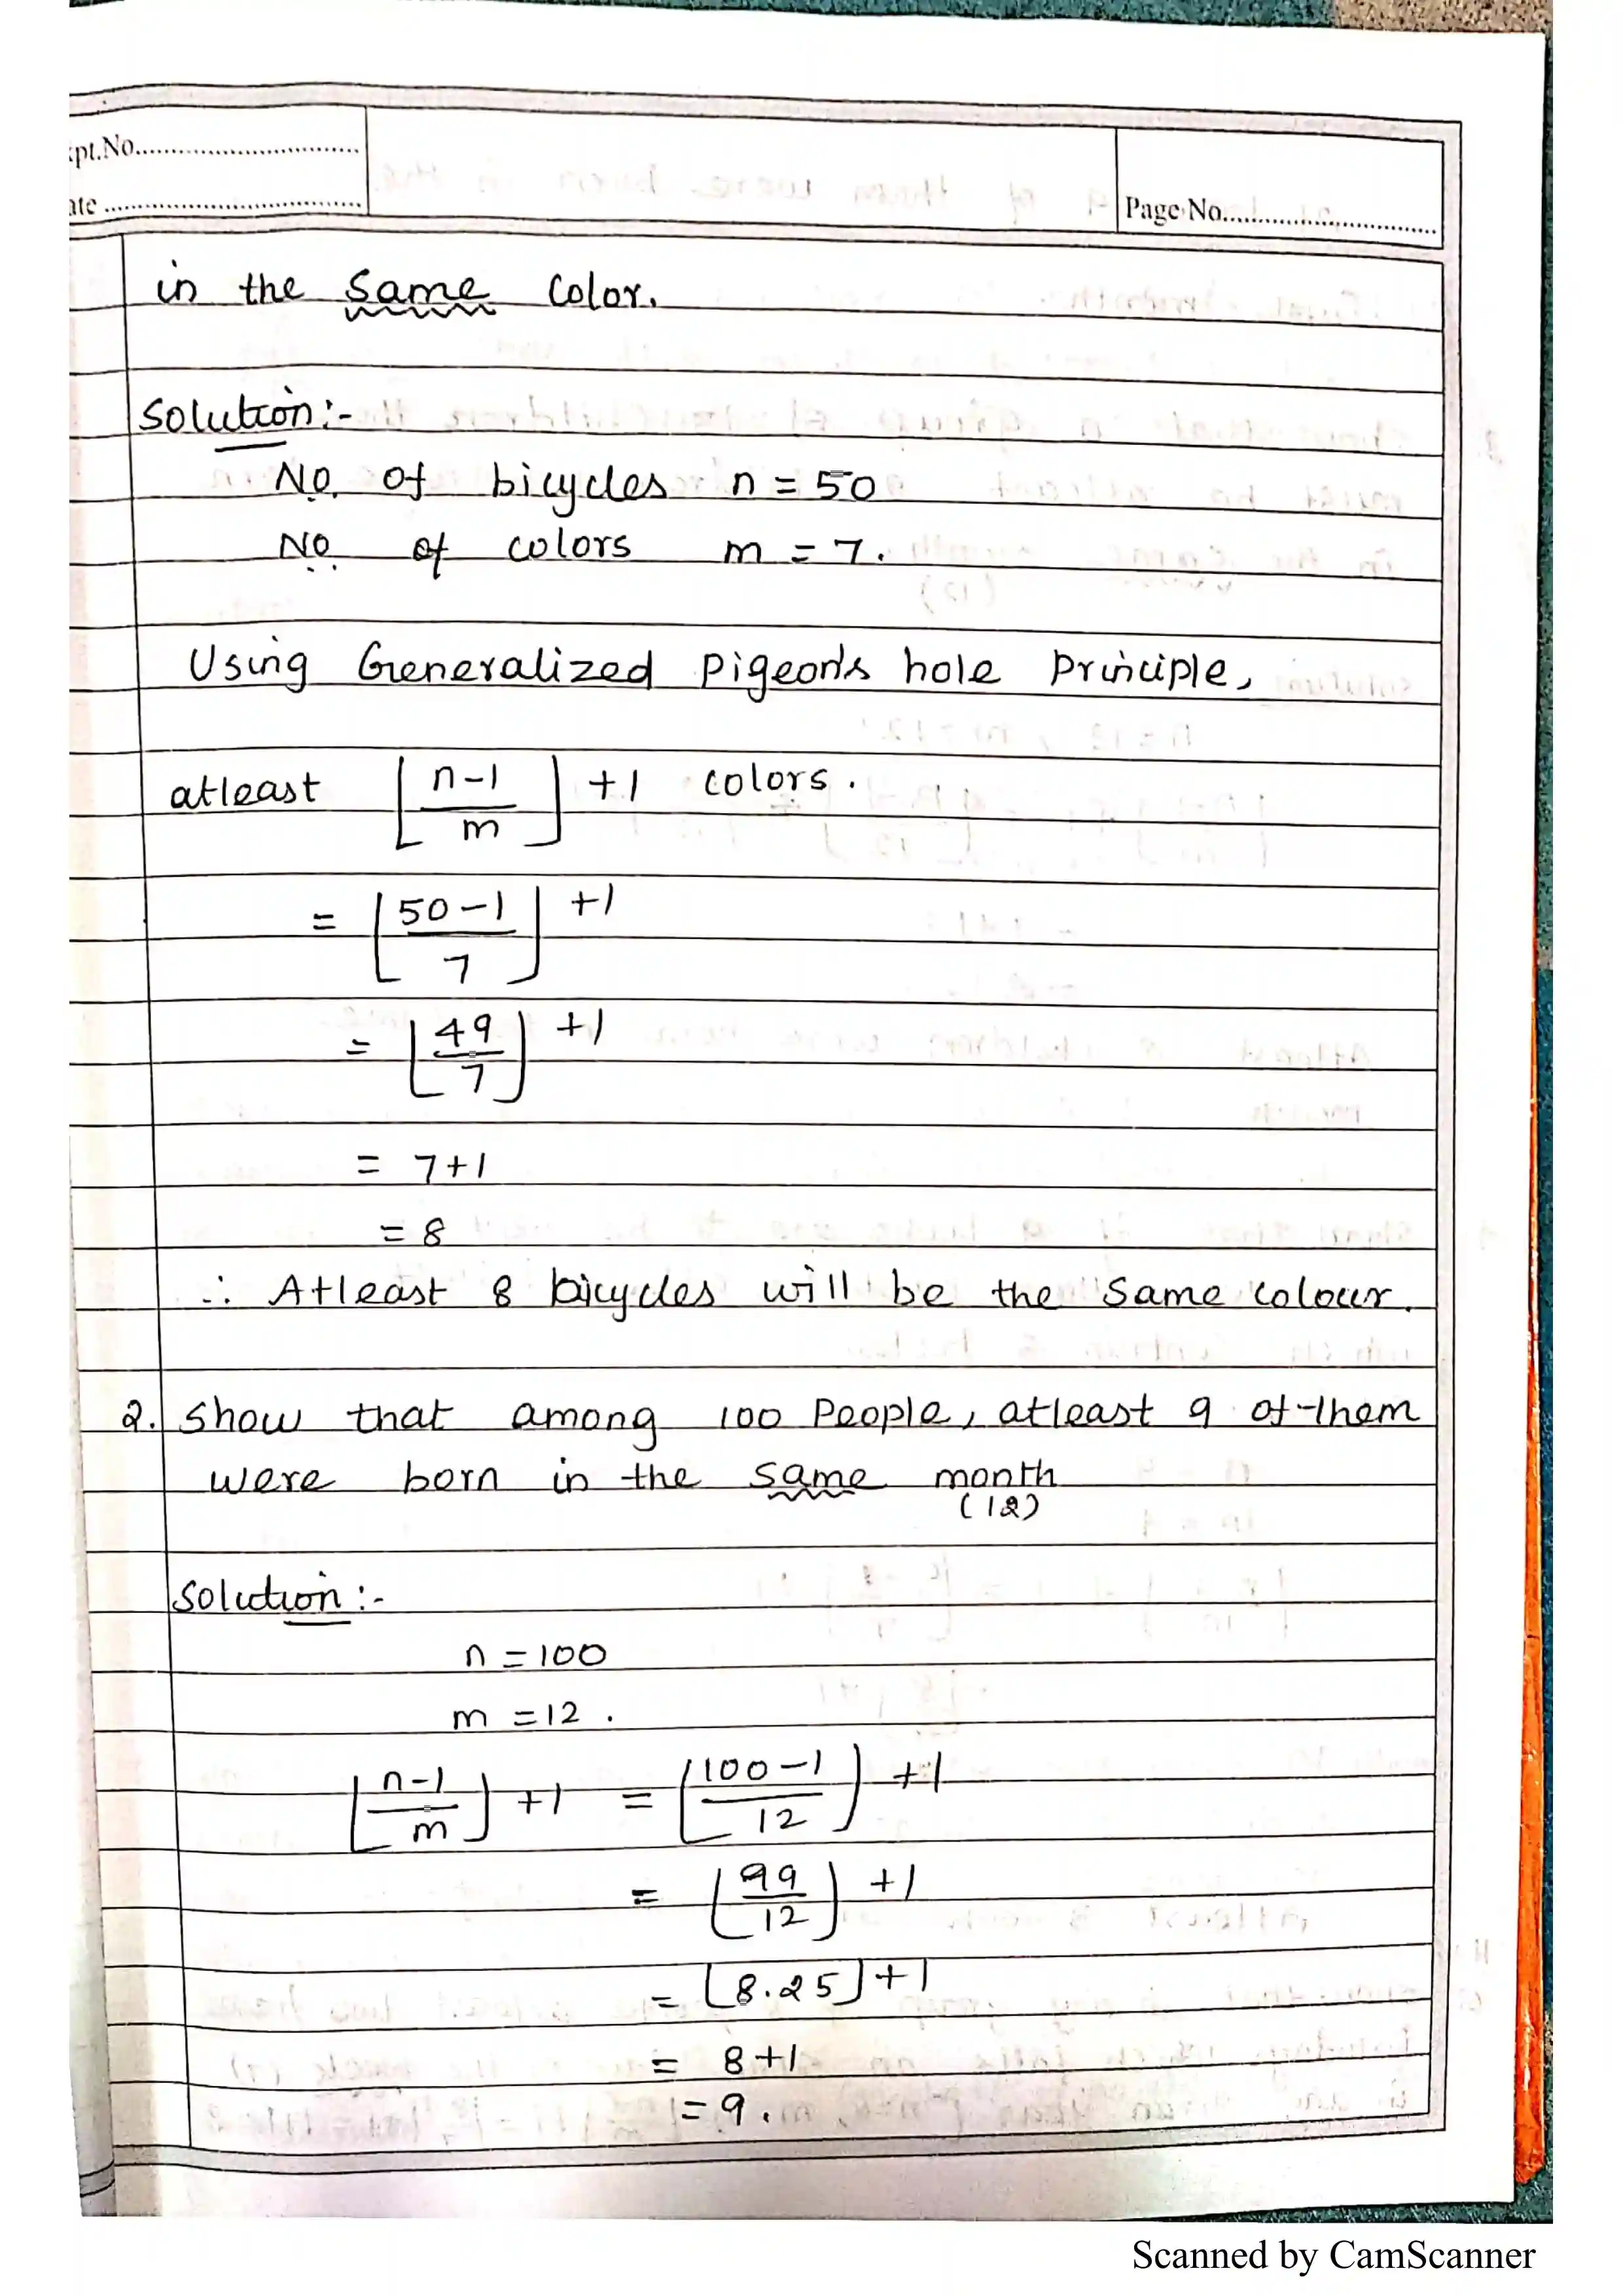 xpt.No..............................
ate ..................................
Page No..............................
in the same color.
Solution:-
No. of bicycles n = 50
No. of colors m = 7.
Using Generalized pigeon's hole principle,
atleast ⌊n-1/m⌋ +1 colors.
= ⌊50-1/7⌋ +1
= ⌊49/7⌋ +1
= 7+1
= 8
∴ Atleast 8 bicycles will be the same colour.
2. Show that among 100 people, atleast 9 of them
were born in the same month
(12)
Solution :-
n = 100
m = 12 .
⌊n-1/m⌋ +1 = ⌊100-1/12⌋ +1
= ⌊99/12⌋ +1
= ⌊8.25⌋ +1
= 8+1
= 9.
Scanned by CamScanner